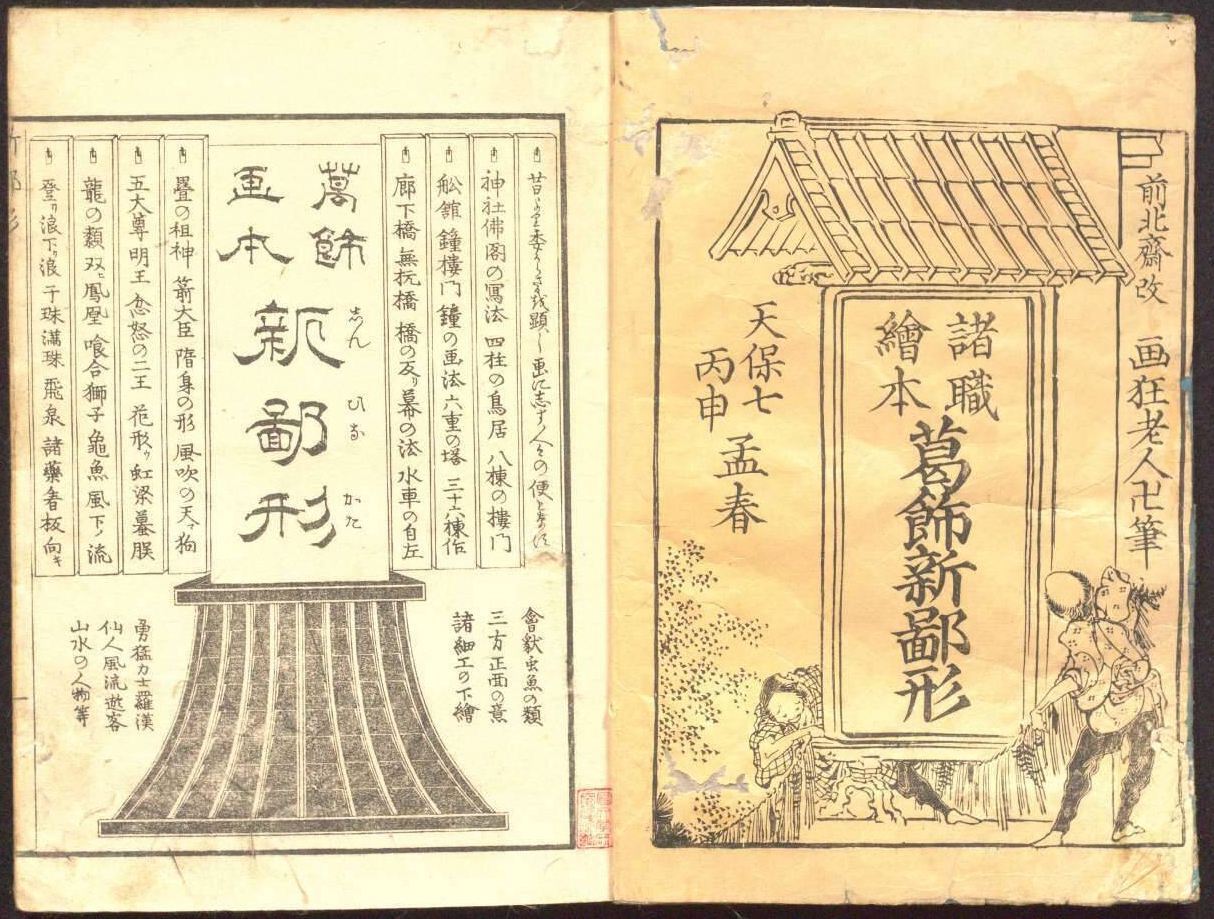 前北齋改
画狂老人卍筆
諸職
繪本
葛飾新鄙形
天保七
丙申
孟春
神社佛閣の寫法 四柱の鳥居 八棟の樓門
舩舘 鐘樓門 鐘の画法 六重の塔 三十六棟作
廊下橋 無抗橋 橋の反り 幕の法 水車の自左
會獣虫魚の類
三方正面の意
諸細工の下繪
葛飾
画本
新鄙形
志ん
ひな
かた
疊の祖神 箭大臣 隋身の形 風吹の天狗
五大尊 明王 忿怒の二王 花形 虹梁蟇股
龍の類 双ニ鳳凰 喰合獅子 龜魚 風下ノ流
登リ浪 下リ浪 干珠滿珠 飛泉 諸藥看板向キ
勇猛力士羅漢
仙人風流遊客
山水の人物等